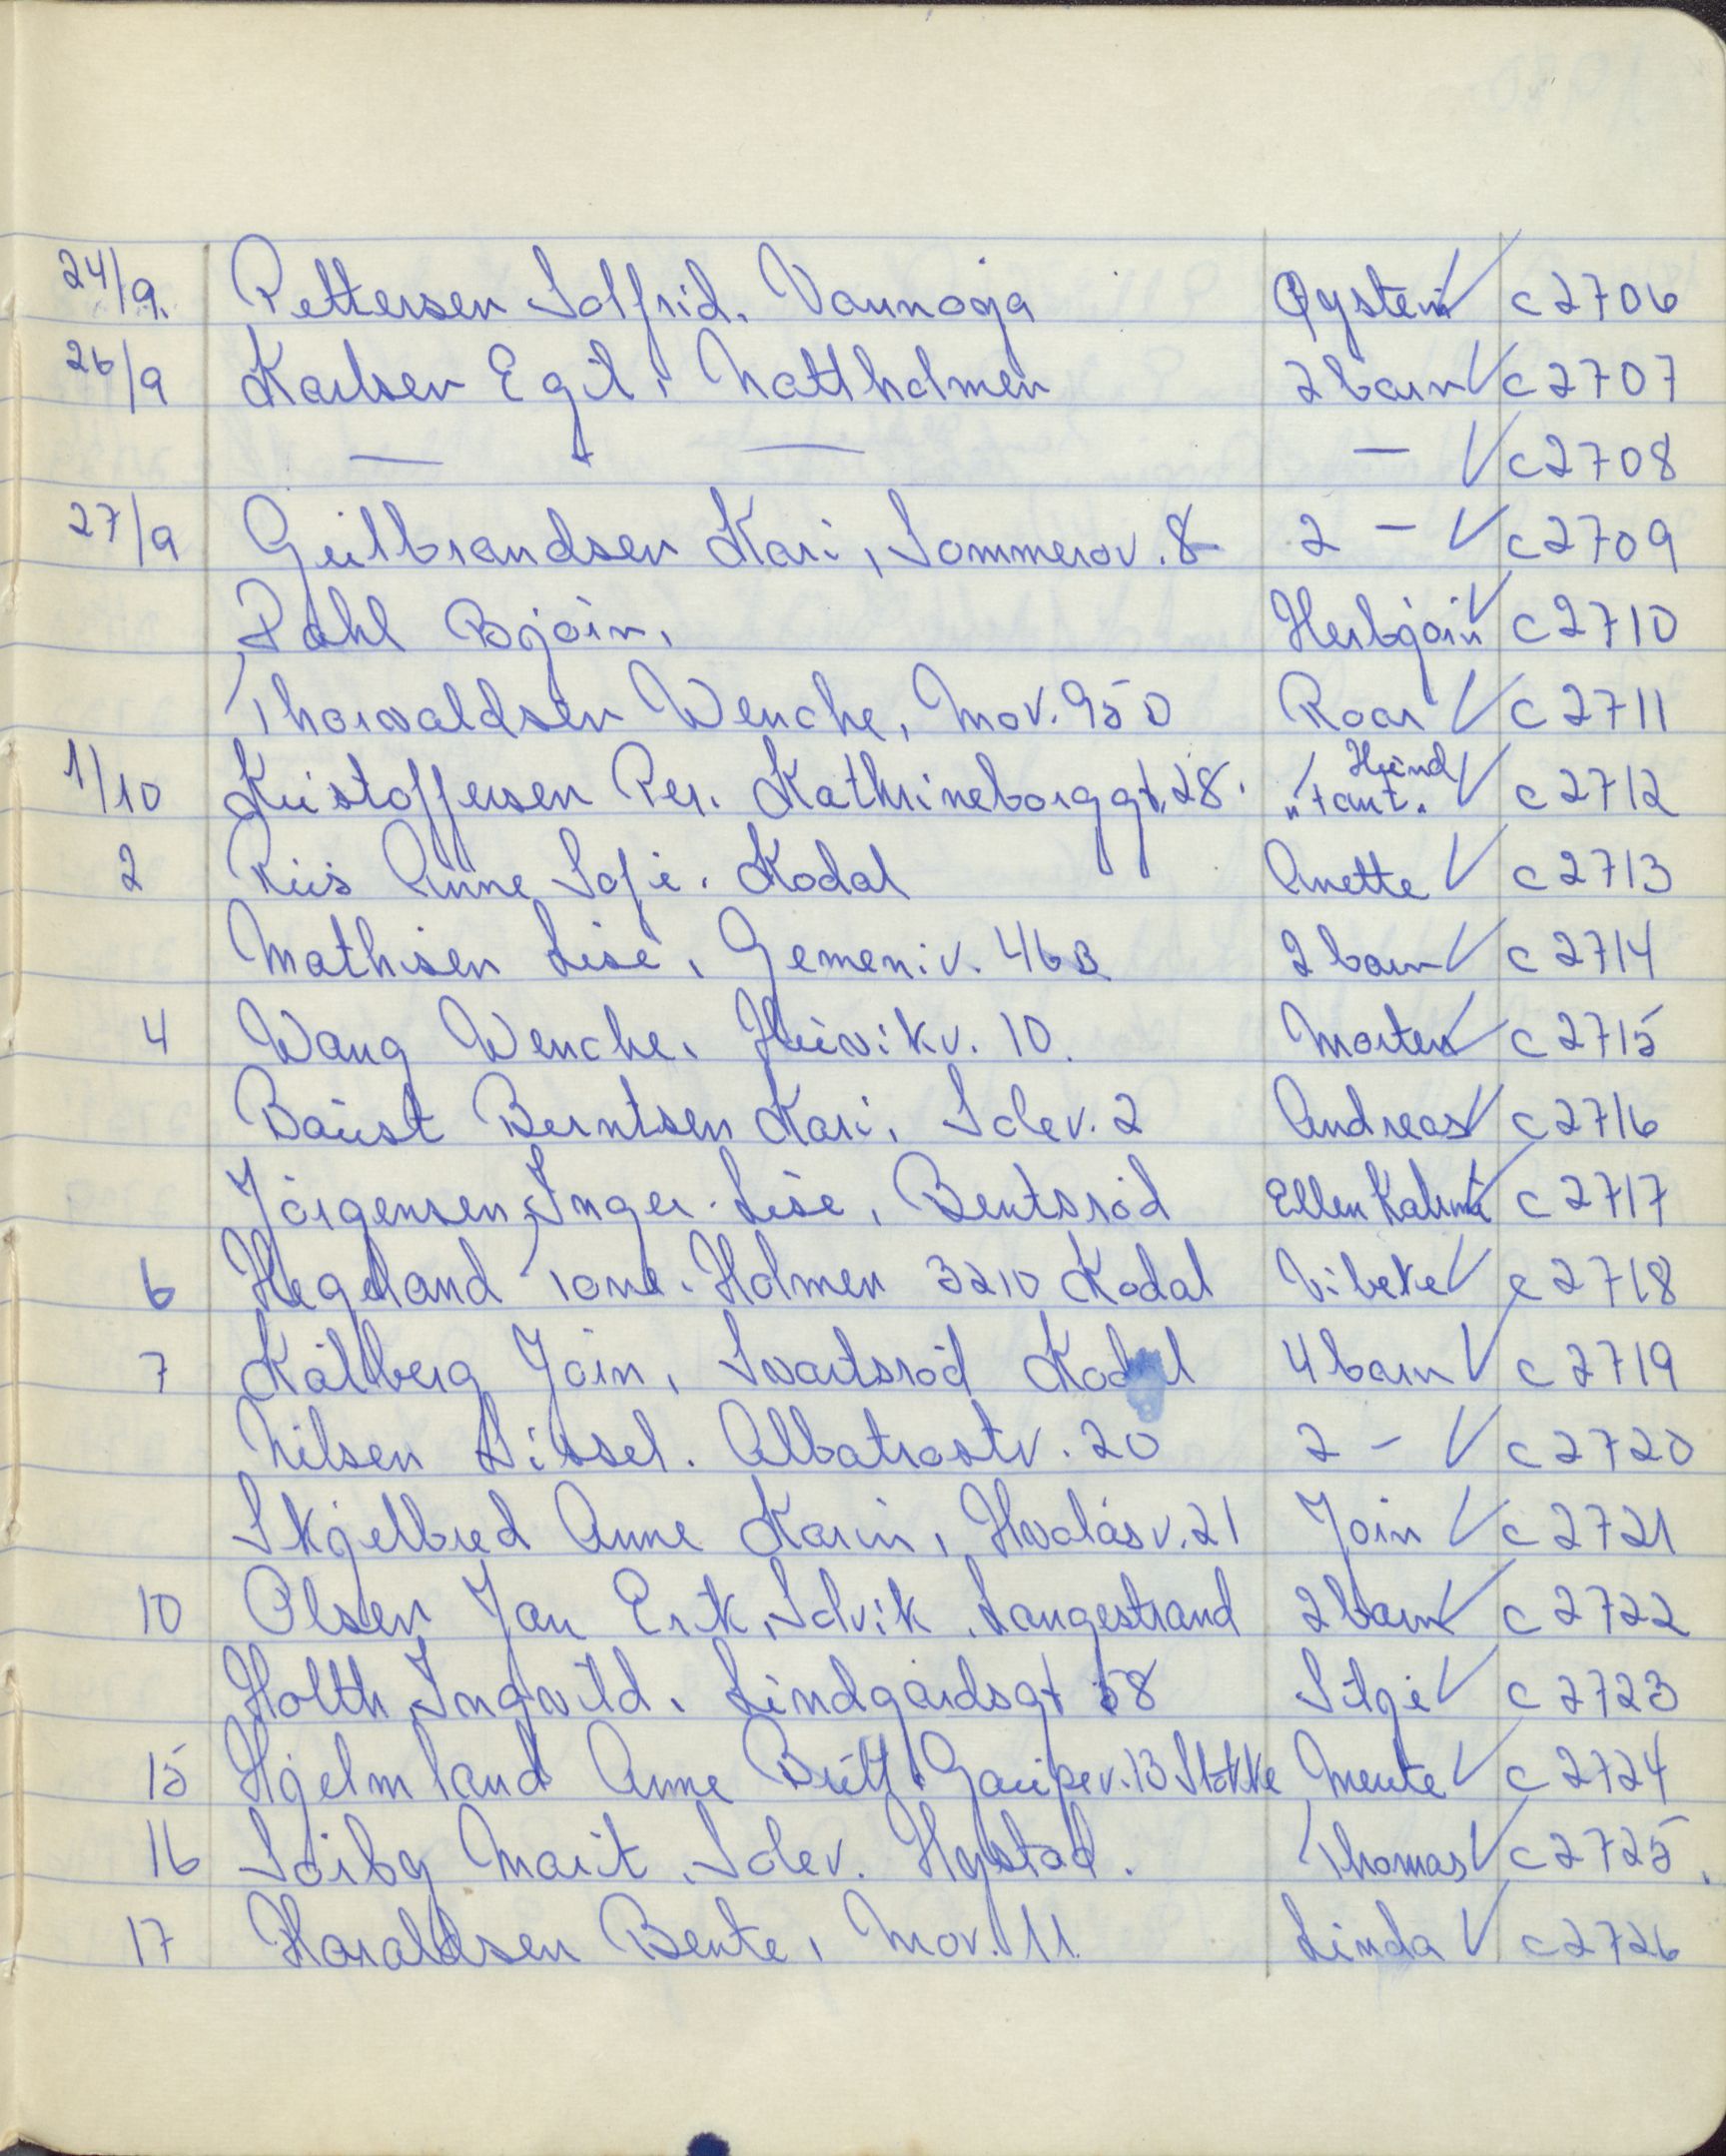 24/9. Pettersen Solfrid. Vannøya Øystein √ c 2706
26/9 Karlsen Egil, Natthølmen 2 barn √ c 2707
— " — — √ c 2708
27/9 Gulbrandsen Kari, Sommerov. 8 2 — √ c 2709
Dahl Bjørn, Herbjørn √ c 2710
Thorvaldsen Wenche, Mov. 95 D Roar √ c 2711
1/10 Kristoffersen Per. Kathrineborggt. 28. Hund "Fant" √ c 2712
2 Riis Anne Sofie. Kodal Anette √ c 2713
Mathisen Lise, Gemeniv. 46 B 2 barn √ c 2714
4 Wang Wenche, Huvikv. 10. Morten √ c 2715
Baust Berntsen Kari, Solev. 2 Andreas √ c 2716
Jørgensen, Inger-Lise, Bentsrød Ellen √ c 2717
6 Hegeland Tone. Holmen 3210 Kodal Vibeke √ c 2718
7 Kålberg Jørn, Svartsrød Kodal 4 barn √ c 2719
Nilsen Sissel. Albatrostv. 20 2 — √ c 2720
Skjelbred Anne Karin, Hvalåsv. 21 Jørn √ c 2721
10 Olsen Jan Erik, Solvik, Langestrand 2 barn √ c 2722
Holth Ingvild. Lindgårdsgt 58 Silje √ c 2723
15 Hjelmland Anne Britt. Gaupev. 13 Stokke Merete √ c 2724
16 Sørby Marit, Solev. Hystad. Thomas √ c 2725.
17 Haraldsen Bente, Mov. 11. Linda √ c 2726